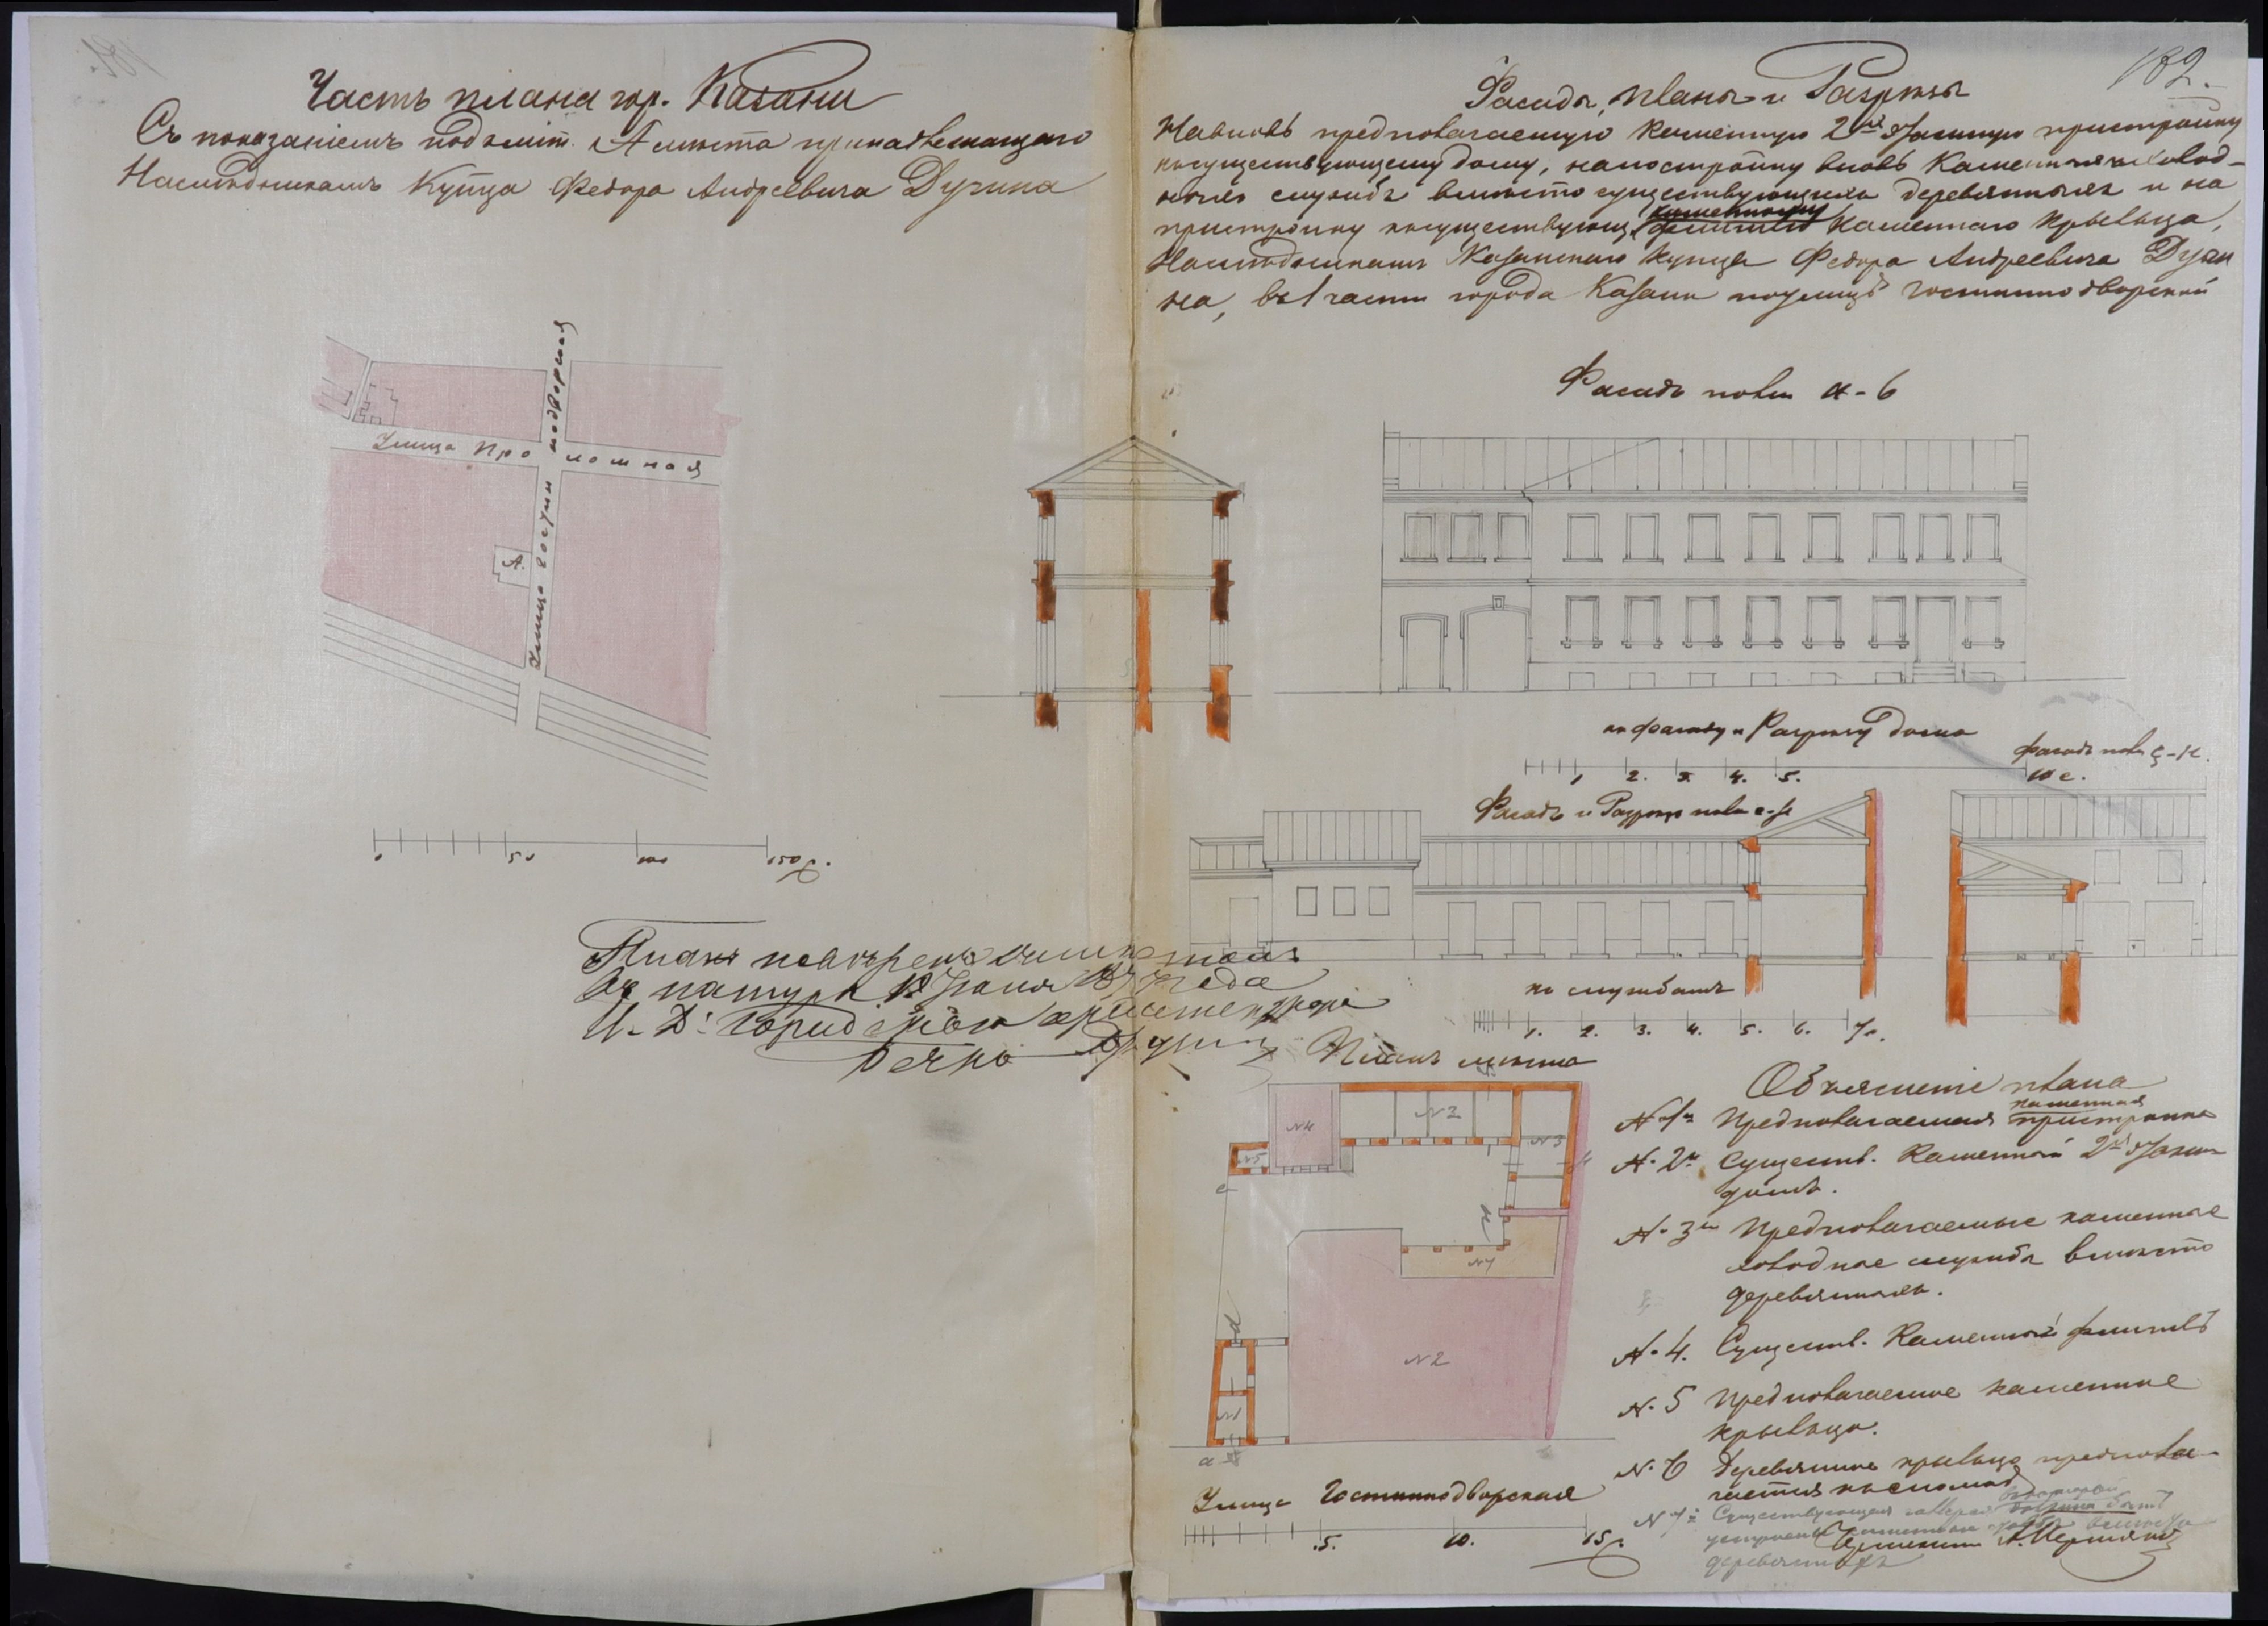 Часть плана гор. Казани
Съ показаніемъ подъ лит. А места принадлежащаго
Наследникамъ Купца Федора Андреевича Дузина
Улица Проломная
Улица Гостиннодворная
А.
50 100 150 с.
Планъ поверенъ съ местомъ
въ натуре
И. Д. Городского архитектора
182.
Фасады, планы и Разрезы
На вновь предполагаемую каменную 2хъ этажную пристройку
къ существующему дому, на постройку вновь каменныхъ холод-
ныхъ службъ вместо существующихъ деревянныхъ и на
пристройку къ существующ. каменному флигелю каменнаго крыльца,
Наследникамъ Казанскаго купца Федора Андреевича Дузи
на, въ 1 части города Казани по улице Гостиннодворской
Фасадъ по лин а-б
къ фасаду и Разрезу дома
1 2. 3. 4. 5. 10 с.
фасадъ по лин
Фасадъ и Разрезъ по лин
къ службамъ
1. 2. 3. 4. 5. 6. 7 с.
Планъ места
N4 N2 N3
N5
N7
N2
N1
а
Улица Гостиннодворская
5. 10. 15 с.
Объясненіе плана
N 1й Предполагаемая каменная пристройка
N. 2й Существ. Каменный 2хъ этажн
домъ.
N. 3й Предполагаемые каменные
холодные службы вместо
деревянныхъ.
N. 4. Существ. Каменный флигель
N. 5 Предполагаемое каменное
крыльцо.
N. 6 Деревянное крыльцо предпола-
гается къ сломке
N 7й Существующая галлерея
деревянныхъ